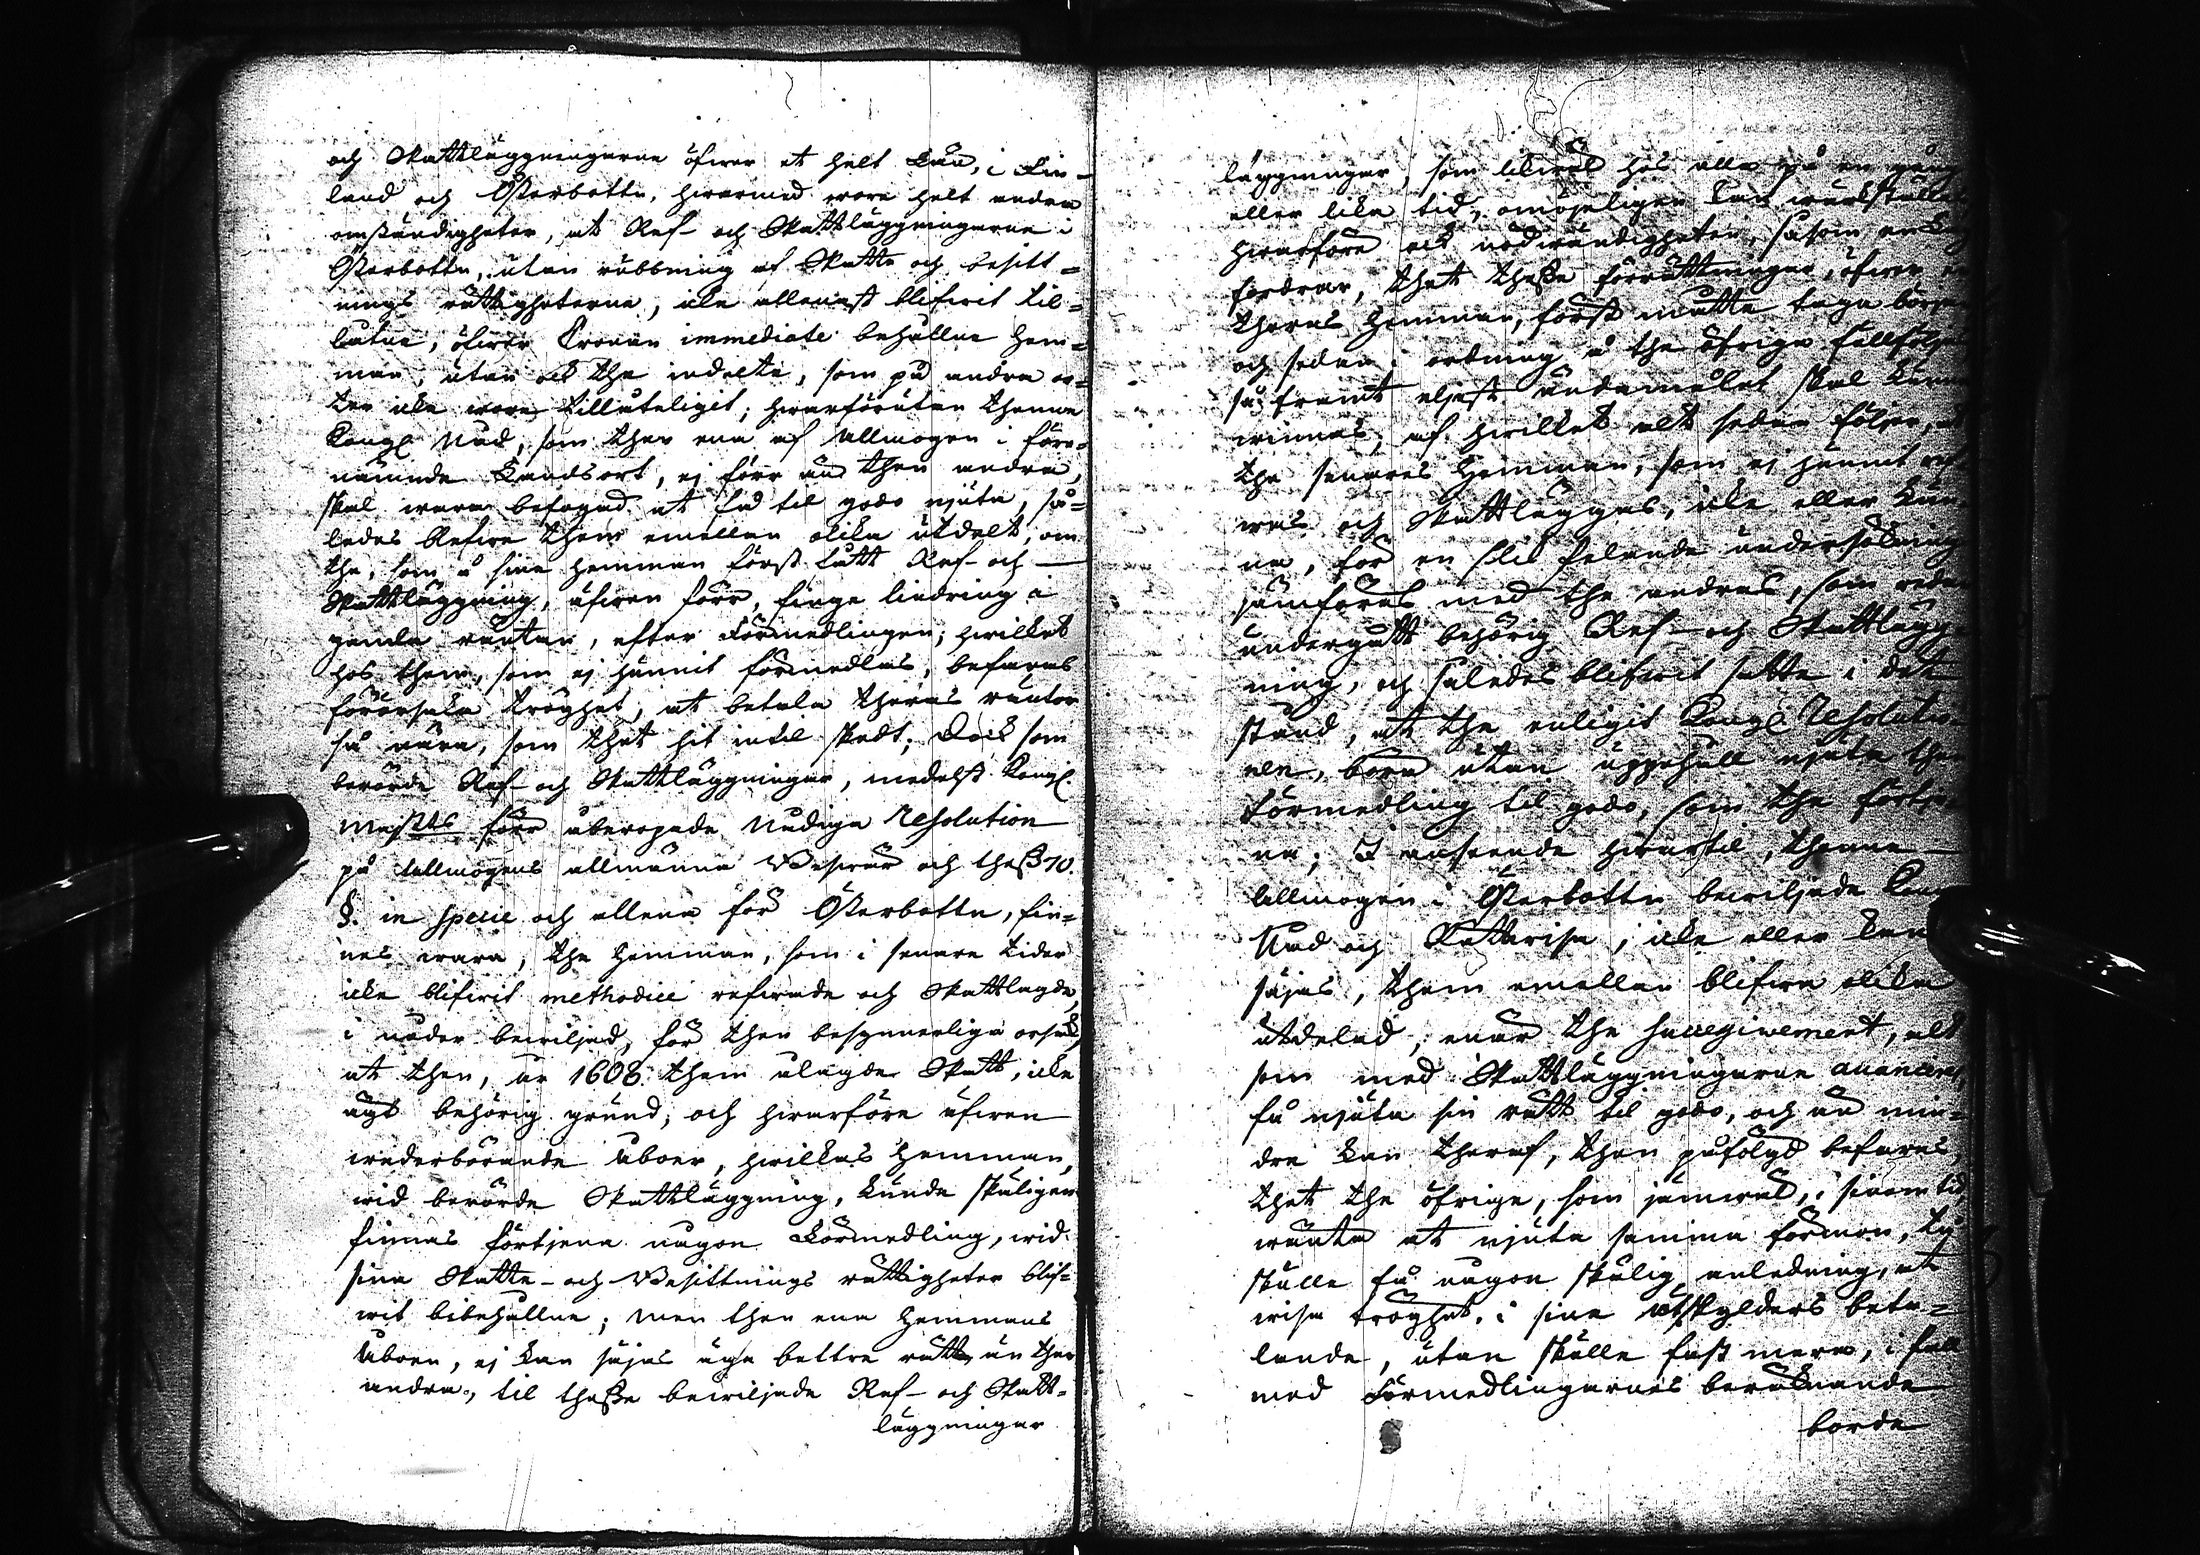 och Skattläggningarne öfwer et helt Län, i Fin-
land och Österbottn, hwarmed wore helt andra
omständigheter, at Ref- och Skattläggningarne i
Österbottn, utan rubbning af Skatte och besitt=
nings rättigheterne, icke allenast blifwit til=
låtne, öfwer Cronan immediate behållne hem=
man, utan ock the indelte, som på andra or=
ter icke wore tillåteligit; hwarförutan thenne
Kongl Nåd, som ther ena af Allmogen i före=
nämnde Landsort, ej förr än then andra,
skal wara befogad at få til godo njuta, så=
ledes blefwe them emellan olika utdelt, om
the, som å sine hemman först fått Ref- och
Skattläggning, äfwen förr, finge lindring i
gamla räntan, efter Förmedlingen; hwilket
hos them, som ej hunnit förmedlas, befaras
förorsaka tröghet, at betala theras räntor
så nära, som thet hit intil skedt; Dock som
berörde Ref- och Skattläggningar, medelst Kongl.
Majsts förr åberopade Nådiga Resolution
på Allmogens allmänna Beswär och thess 70.
§. in specie och allena för Österbottn, fin=
nes wara, the Hemman, som i senare tider
icke blifwit methodice refwade och Skattlagde,
i nåder bewiljad, för then besynnerliga orsak,
at then, år 1608 them ålagde Skatt, icke
ägt behörig grund; och hwarföre äfwen
wederbörande Åboer, hwilkas Hemman,
wid berörde Skattläggning, kunde skäligen
finnas förtjena någon Förmedling, wid
sina Skatte- och Besittnings rättigheter blif=
wit bibehållne; men then ena Hemmans
Åboen, ej kan säjas äga bettre rätt, än then
andra, til thesse bewiljade Ref- och Skatt=
läggningar
läggningar, som likwäl hos alla på en gång
eller lika tid, omöjeligen kan wärkställas
hwarföre ock nödwändigheten, såsom en
fordrar, thet thesse förrättningar, öfwer en
theras Hemman, först måtte taga börjar
och sedan i ordning å the öfriga fullföljas
så framt eljest ändamålet skal kunna
winnas, af hwilket alt sedan följer, at
the senares Hemman, som ej hunnit ref
was och Skattläggas, icke eller kun
na, för en slik felande undersökning
jämföras med the andras, som redan
undergått behörig Ref- och Skattlägg
ning, och således blifwit satte i det
stånd, at the enligit Kongl Resolutio
nen, böra utan uppehåll njuta then
Förmedling til godo, som the förtje
na; I anseende hwartil, thenne
Allmogen i Österbottn bewiljade Kongl
Nåd och Rättwisa, icke eller kan
säjas, them emellan blifwa olika
utdelad, enär the successivement, alt
som med Skattläggningarne avanceras,
få njuta sin rätt til godo, och än min=
dre kan theraf, then påföljd befaras,
thet the öfrige, som jämwäl, i sinom tid
wänta at njuta samma förmon, ty
skulle få någon skälig anledning, at
wisa tröghet i sine utskylders beta=
lande, utan skulle fast mera, i fall
med Förmedlingarnes beräknande
borde